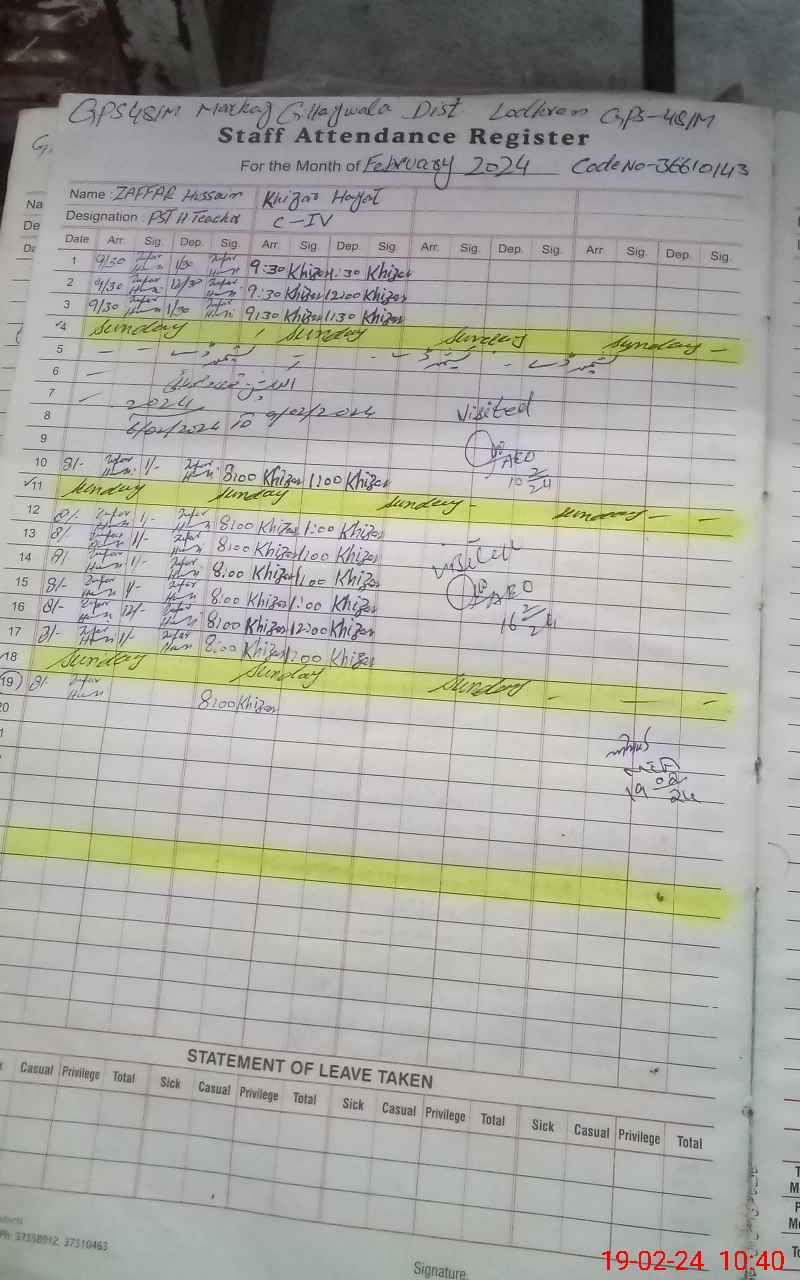 GPS 48/M Markaz Gillaywala Dist Lodhran GPS-48/M
Staff Attendance Register
For the Month of February 2024 Code No-36610143
Name : ZAFFAR Hussain Khizar Hayat
Designation : PST H Teacher C-IV
Date Arr. Sig. Dep. Sig. Arr. Sig. Dep. Sig. Arr. Sig. Dep. Sig. Arr. Sig. Dep. Sig.
1 9/30 1/30 9:30 Khizar 1:30 Khizar
2 9/30 12/30 9:30 Khizar 12:00 Khizar
3 9/30 1/30 9:30 Khizar 1:30 Khizar
4 Sunday Sunday Sunday Sunday
5
6
7 2024
8 6/02/2024 to 9/02/2024 Visited
9 AEO
10 8/- 1/- 8:00 Khizar 1:00 Khizar 10 2/24
11 Sunday Sunday Sunday Sunday
12 8/- 1/- 8:00 Khizar 1:00 Khizar
13 8/- 1/- 8:00 Khizar 1:00 Khizar
14 8/- 1/- 8:00 Khizar 1:00 Khizar visited
15 8/- 1/- 8:00 Khizar 1:00 Khizar AEO
16 8/- 12/- 8:00 Khizar 12:00 Khizar 16 2/24
17 8/- 1/- 8:00 Khizar 1:00 Khizar
18 Sunday Sunday Sunday
19 8/- 8:00 Khizar
20
19 02/24
STATEMENT OF LEAVE TAKEN
Casual Privilege Total Sick Casual Privilege Total Sick Casual Privilege Total Sick Casual Privilege Total
Ph: 37358912, 37310463
Signature
19-02-24 10:40